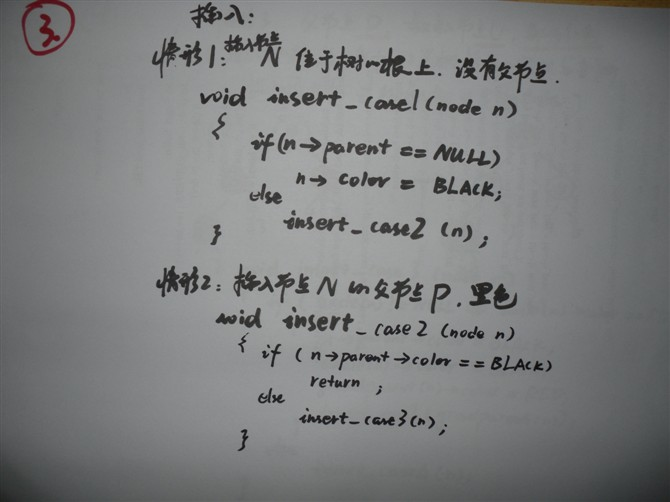 ③
插入:
情形1:插入节点N 位于树的根上. 没有父节点.
void insert_case1(node n)
{
if(n→parent == NULL)
n→color = BLACK;
else
insert_case2 (n);
}
情形2: 插入节点 N 的父节点 P. 黑色
void insert_case2 (node n)
{ if (n→parent→color == BLACK)
return ;
else
insert_case3(n);
}